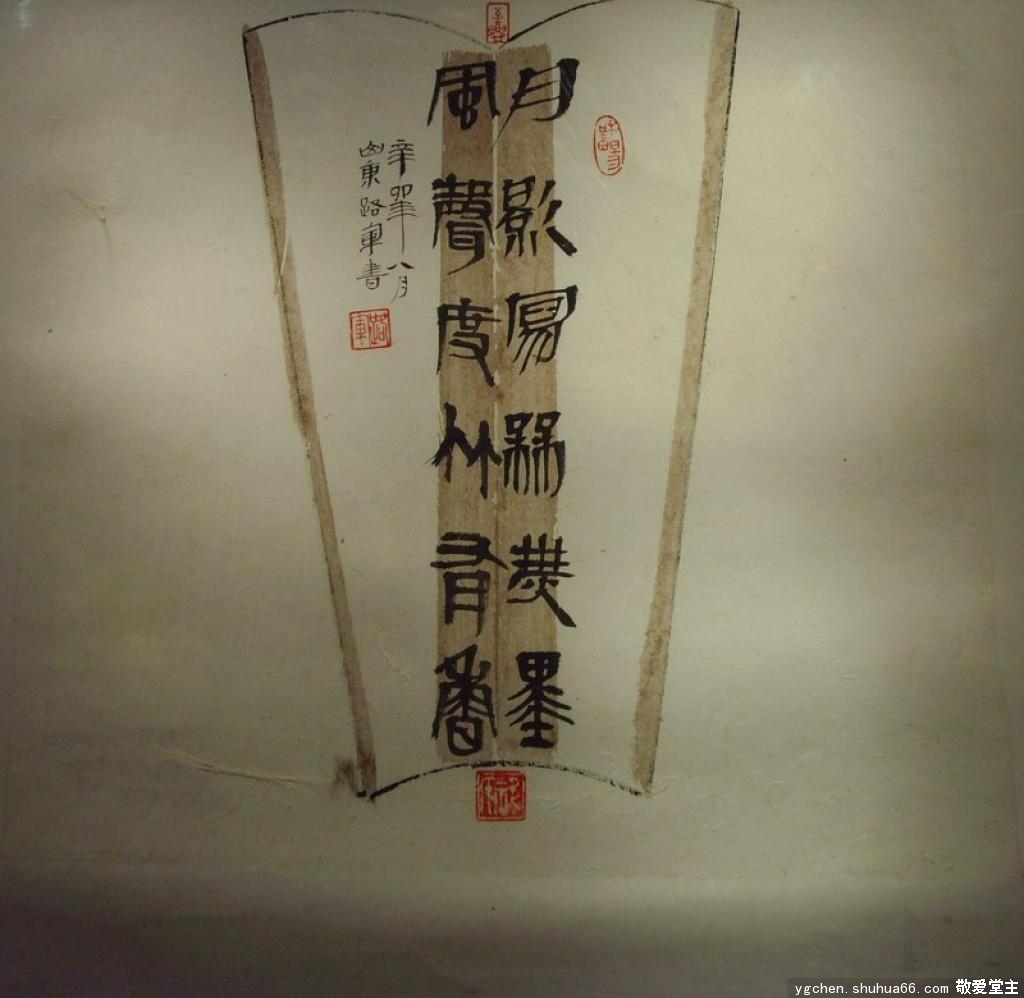 月影寫梅無墨
風聲度竹有香
辛卯年八月
山東路軍書
路軍
ygchen.shuhua66.com 敬爱堂主